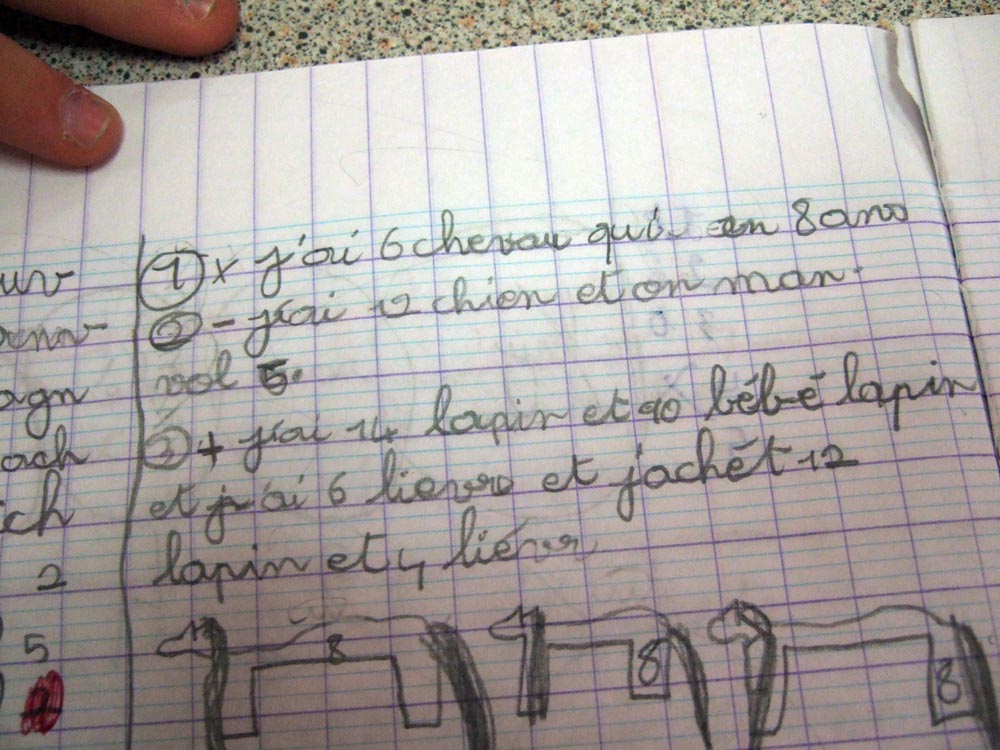 ① x j'ai 6 chevau qui en 8 ans
② - j'ai 12 chien et on man-
vol 5.
③ + j'ai 14 lapin et 10 bébé lapin
et j'ai 6 lievre et j'achèt 12
lapin et 4 liévr
ur-
enn-
agn
ach
ch
2
5
8
8
8